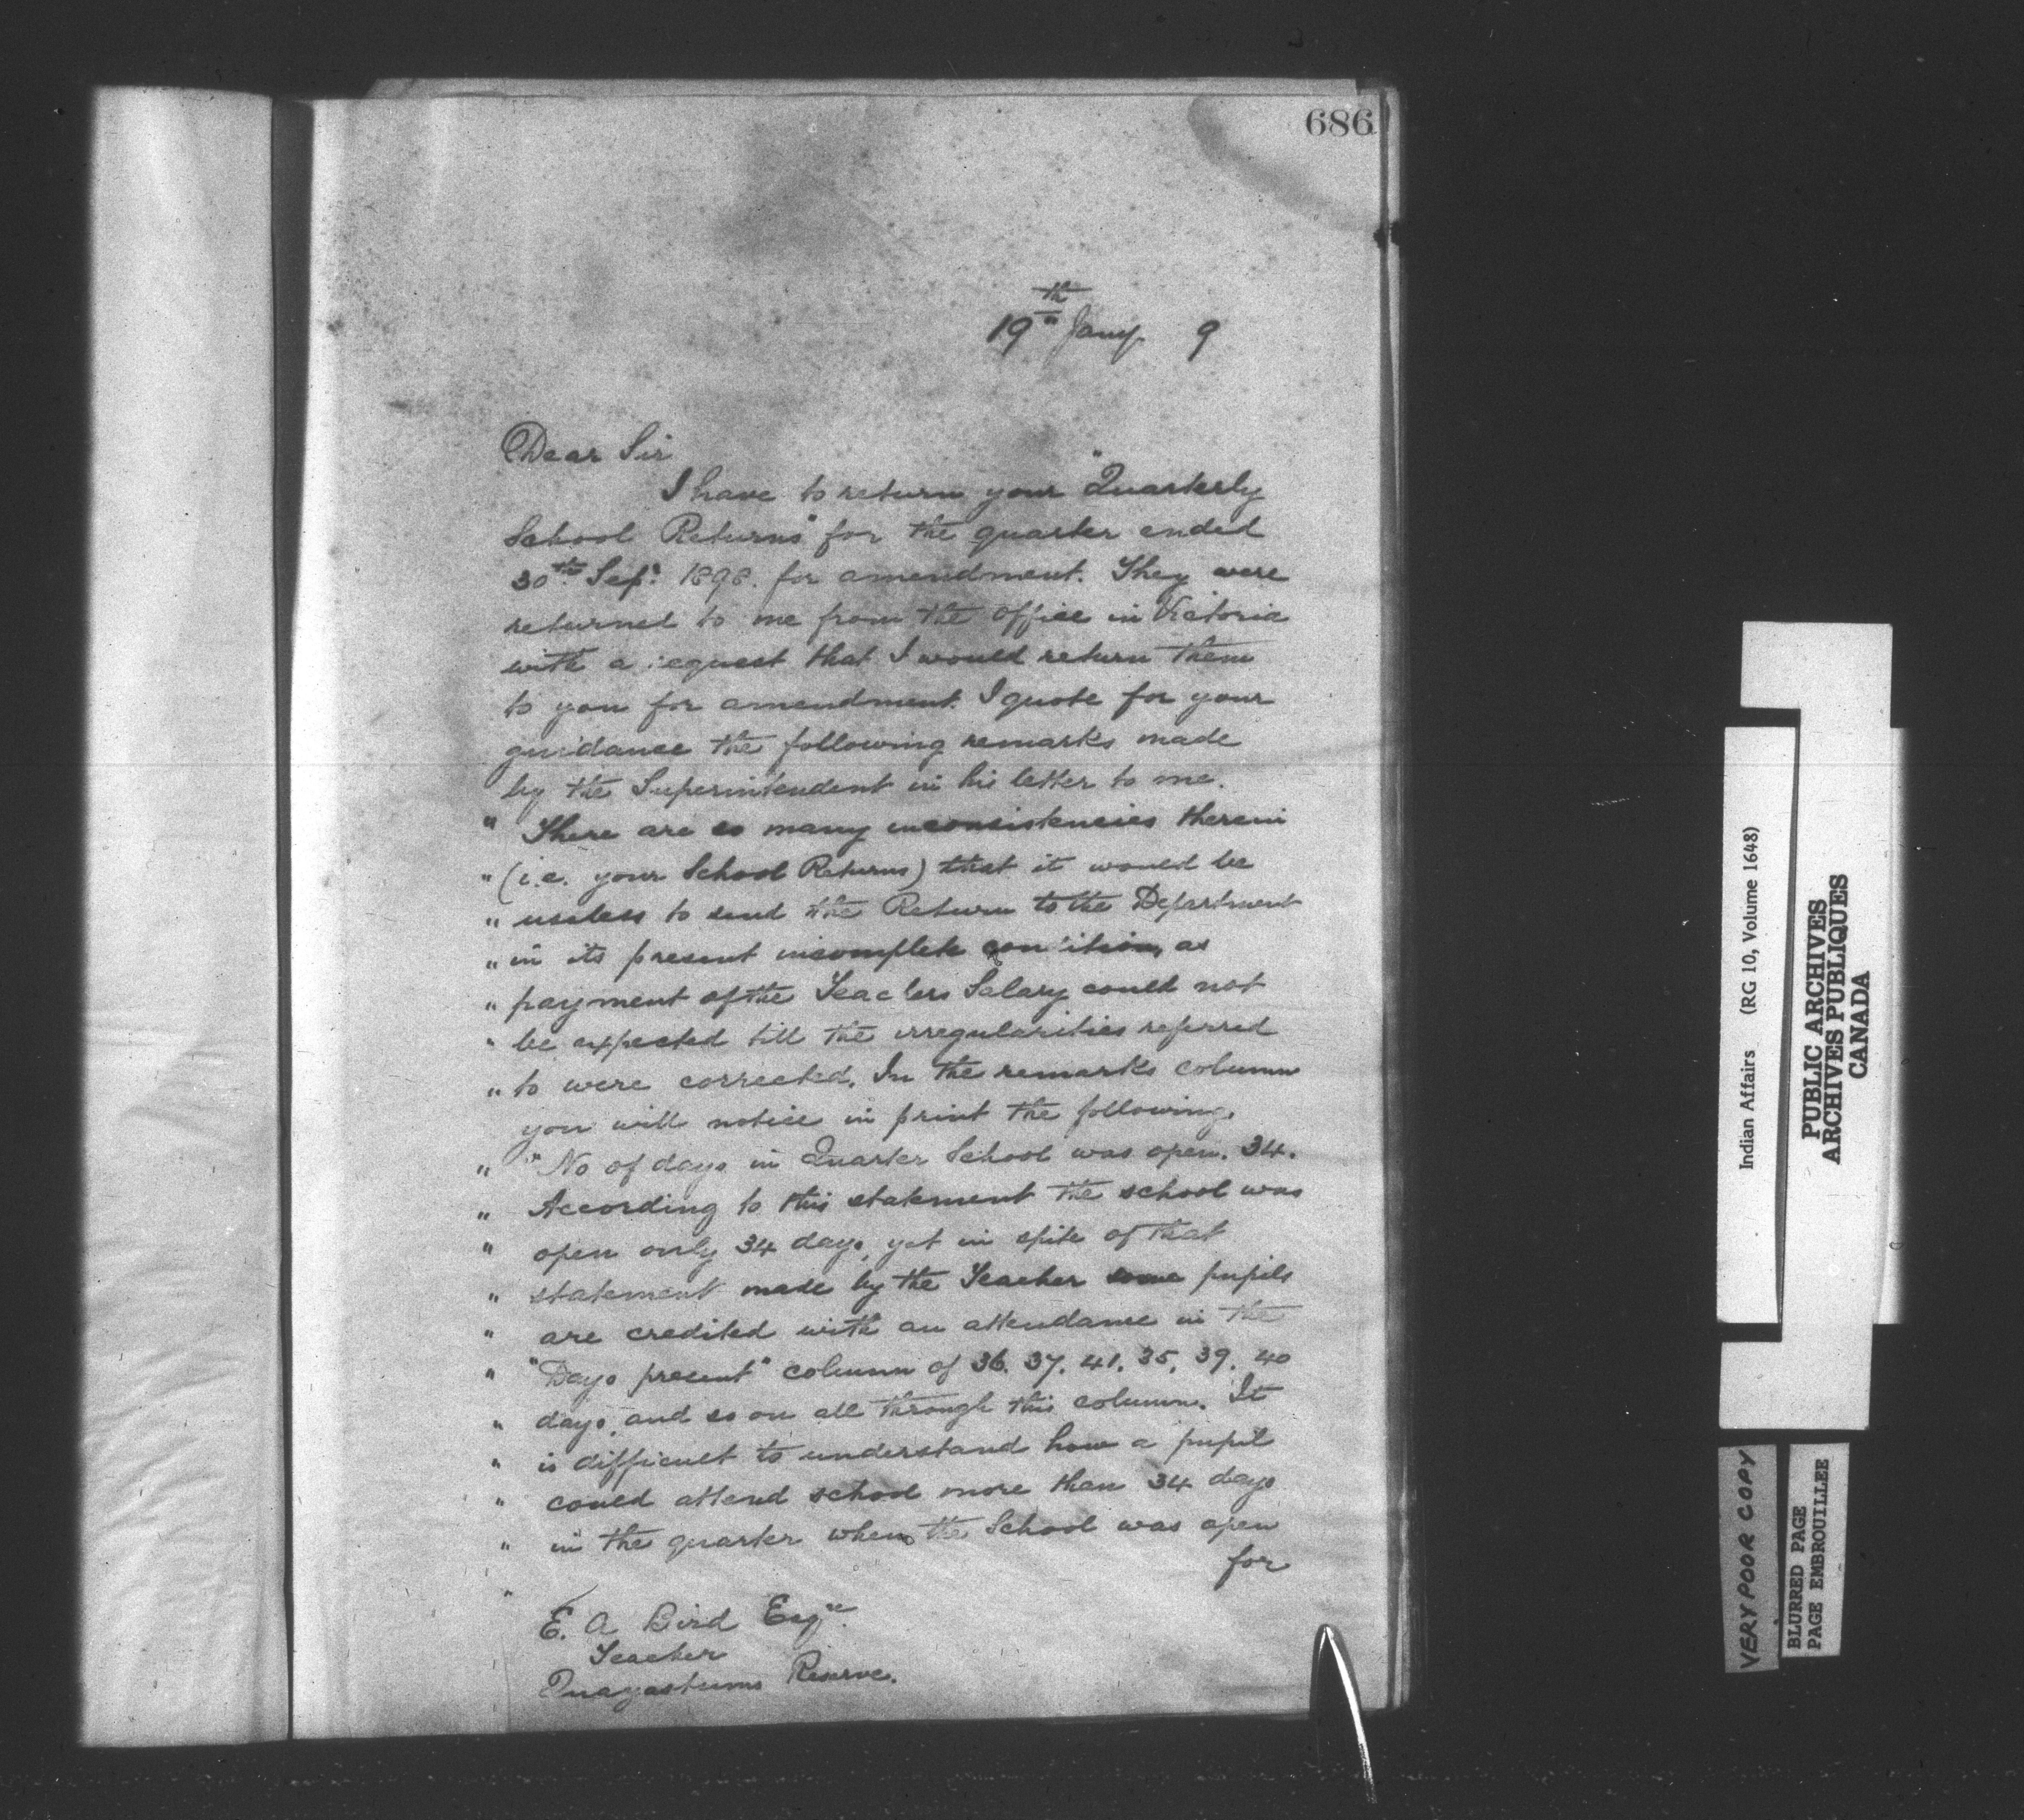 686
19th Jany. 9
Dear Sir
I have to return your "Quarterly
School Returns" for the quarter ended
30th Sept. 1898. for amendment. They were
returned to me from the office in Victoria
with a request that I would return them
to you for amendment. I quote for your
guidance the following remarks made
by the Superintendent in his letter to me.
" There are so many inconsistencies therein
" (i.e. your School Returns) that it would be
" useless to send the Return to the Department
" in its present incomplete condition, as
" payment of the Teachers Salary could not
" be expected till the irregularities referred
" to were corrected. In the remarks column
you will notice in print the following.
" "No of days in Quarter School was open. 34.
" According to this statement the school was
" open only 34 days, yet in spite of that
" statement made by the Teacher some pupils
" are credited with an attendance in the
" "Days present" column of 36. 37. 41. 35. 39. 40
" days, and so on all through this column. It
" is difficult to understand how a pupil
" could attend school more than 34 days
" in the quarter when the School was open
" for
E. A Bird Esqre.
Teacher
Reserve.
Indian Affairs (RG 10, Volume 1648)
PUBLIC ARCHIVES
ARCHIVES PUBLIQUES
CANADA
VERY POOR COPY
BLURRED PAGE
PAGE EMBROUILLEE